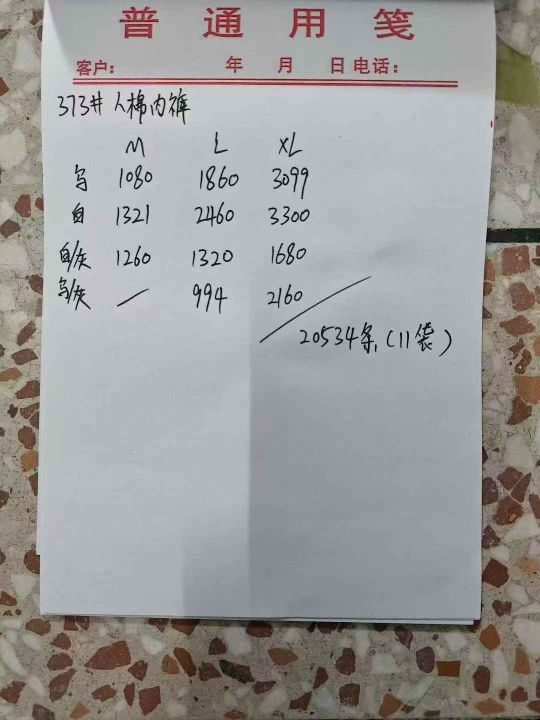 普通用笺
客户: 年 月 日 电话:
373# 人棉内裤
M L XL
乌 1080 1860 3099
白 1321 2460 3300
白/灰 1260 1320 1680
乌/灰 / 994 2160
20534条,(11袋)